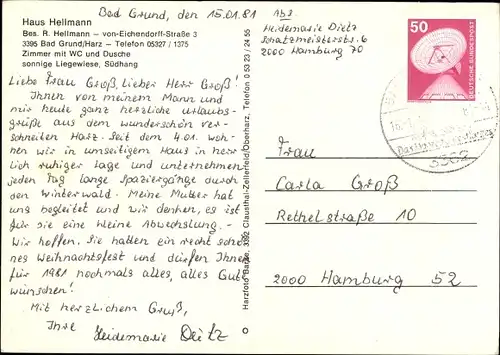 Haus Hellmann
Bes. R. Hellmann – von-Eichendorff-Straße 3
3395 Bad Grund/Harz – Telefon 05327 / 1375
Zimmer mit WC und Dusche
sonnige Liegewiese, Südhang
Bad Grund, den 15.01.81
Liebe Frau Groß, lieber Herr Groß!
Ihnen von meinem Mann und
mir heute ganz herzliche urlaubs-
grüße aus dem wunderschön ver-
schneiten Harz. Seit dem 4.01. woh-
nen wir in umseitigem Haus in herr
lich ruhiger Lage und unternehmen
jeden Tag lange Spaziergänge durch
den Winterwald. Meine Mutter hat
uns begleitet und wir denken, es ist
für sie eine kleine Abwechslung. -
Wir hoffen, Sie hatten ein recht schö
nes Weihnachtsfest und dürfen Ihnen
für 1981 nochmals alles, alles Gute
wünschen!
Mit herzlichem Gruß,
Ihre
Heidemarie Dietz
Harzfoto Barke, 3392 Clausthal-Zellerfeld/Oberharz, Telefon 0 53 23 / 24 55
Abs.
Heidemarie Dietz
Schatzmeisterstr. 6
2000 Hamburg 70
50
DEUTSCHE BUNDESPOST
Frau
Carla Groß
Rethelstraße 10
2000 Hamburg 52